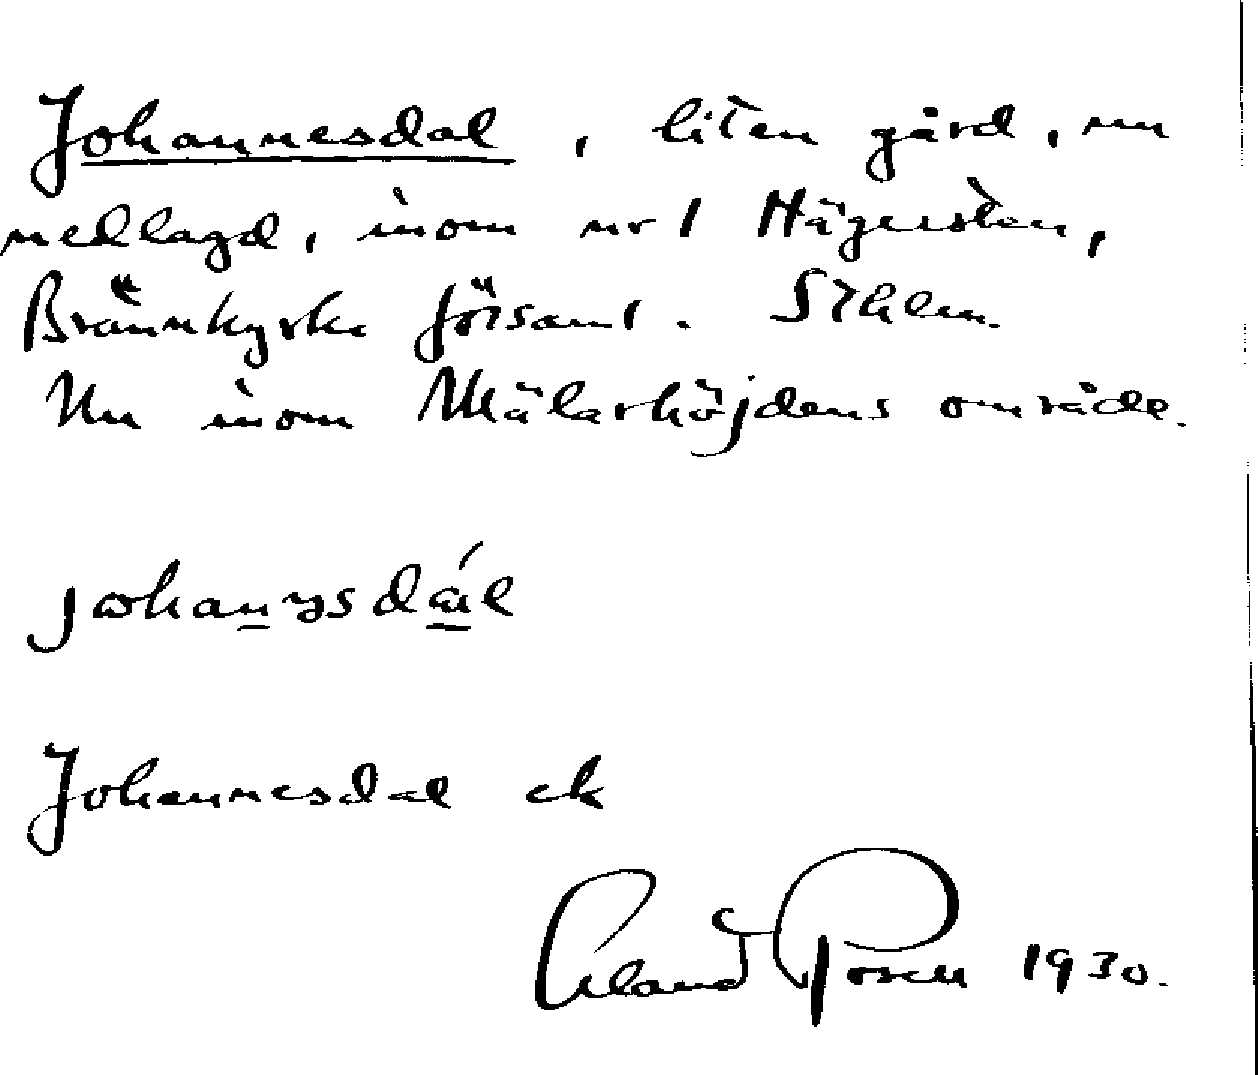 Johannesdal, liten gård, nu
nedlagd, inom nr 1 Hägersten,
Brännkyrka församl. Sthlm.
Nu inom Mälarhöjdens område.
Johannesdal ek
Erland Rosell 1930.